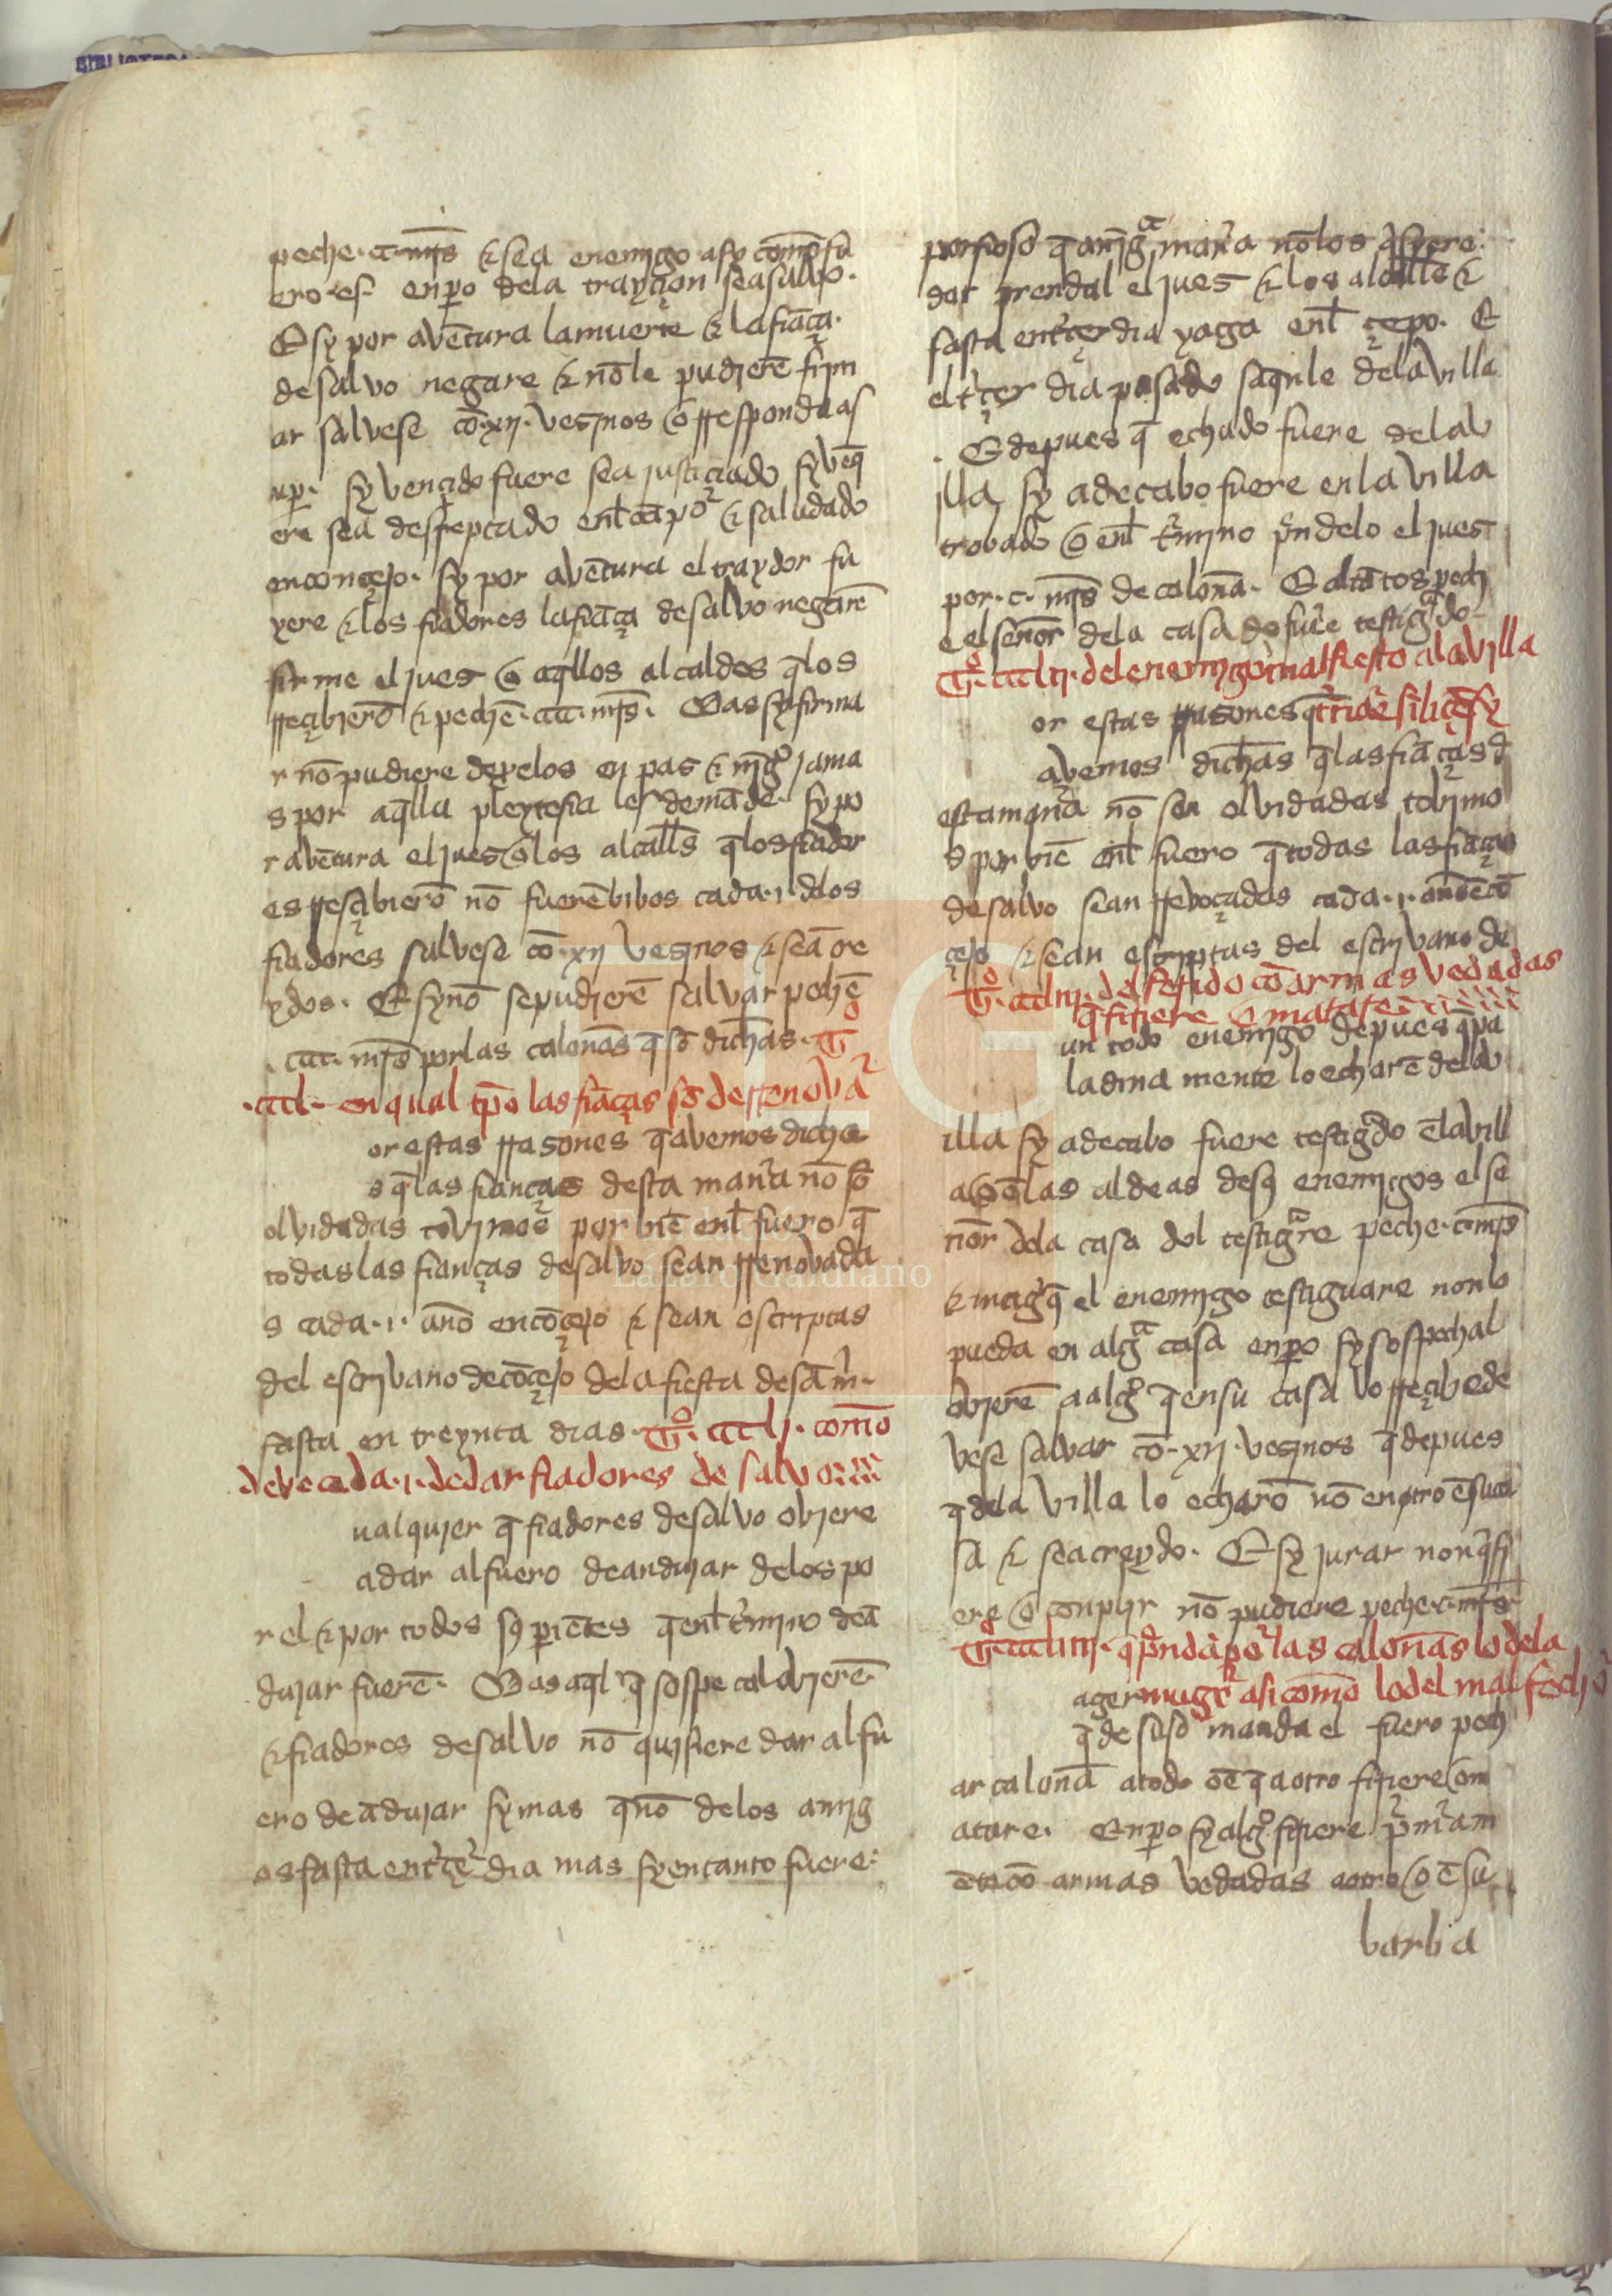 peche · c · mr̃s ⁊ sea enemigo asy como fu
ero es enp̱o dela trayçion sea saluo ·
E sy por avẽtura la muerte ⁊ la fiãça
de salvo negare ⁊ nõ le pudierẽ firm
ar salvese cõ · xij · vesjnos o rresponda a s
u p̱ · sy vençido fuere sea justiçiado sy vẽq̃
ere sea desrreptado enl̃ cãpo ⁊ saludado
en conçejo · sy por avẽtura el traydor fu
yere ⁊ los fiadores la fiãça de salvo negarẽ
firme el jues o aq̃llos alcaldes q̃ los
rreçibierõ ⁊ pechẽ · cc · mr̃s · Mas sy firma
r nõ pudiere dexelos en pas ⁊ njg̊ jama
s por aq̃lla pleytesia les demãde · sy po
r avẽtura el jues o los alcall̃s q̃ los fiador
es rresçibierõ nõ fuerẽ bibos cada · j · delos
fiadores salvese cõ · xij vesjnos ⁊ seã cre
ydos · E sy nõ se pudierẽ salvar pechẽ
· cc · mr̃s por las calonãs q̃ sõ dichas · T̊
· ccl · en qual tp̃o las fiãças sõ de rrenovar
or estas rrasones q̃ avemos dicha
s q̃ las fianças desta man̾a nõ sõ
olvidadas tovimos por biẽ enl̃ fuero q̃
todas las fianças de salvo sean rrenovada
s cada · j · anõ en cõçejo ⁊ sean escriptas
del escrivano de cõçejo dela fiesta de sã m̃ ·
fasta en treynta dias · T̊ · ccl j · comõ
deve cada · j · de dar fiadores de salvo
ualqujer q̃ fiadores de salvo obiere
a dar al fuero de andujar delos po
r el ⁊ por todos sꝰ pariẽtes q̃ enl̃ t̾mino de ã
dujar fuerẽ · Mas aq̃l q̃ sospecal obierẽ
⁊ fiadores de salvo nõ qujsiere dar al fu
ero de ãdujar sy mas q̃ nõ delos amig
os fasta en t̾çe̾ dia mas sy en tanto fuere
porfioso q̃ anjg̃ man̾a nõ los q̃siere
dar prendal el jues ⁊ los alcalł̃e ⁊
fasta en t̾çer dia yaga enl̃ çepo · E
el t̾çer dia pasado saq̃nle dela villa
· E depues q̃ echado fuere dela v
illa sy a de cabo fuere en la villa
trobado o enl̃ t̾mjno p̾ndelo el jues
por · c · mr̃s de calonã · E otãtos pech
e el senõr dela casa do fue̾ testig̃do
T̊ · cclij · del enemigo malfiesto ala villa
or estas rrasones q̃
avemos dichas q̃ las fiãças d̃
esta man̾a nõ sea olvidadas tovjmo
s por biẽ enl̃ fuero q̃ todas las fiãças
de salvo sean rrevocadas cada · j · anõ ẽ cõ
çejo ⁊ sean escriptas del escrivano de
T̊ · ccliij · del ferido cõ armas vedadas
q̃ firiere o matare
un todo enemjgo depues q̃ pa
ladina mente lo echarẽ dela v
illa sy a de cabo fuere testig̃do ẽ la vill
a o ẽ las aldeas de sꝰ enemigos el se
nõr dela casa del testig̃re peche · c mr̃s
⁊ mag̾ q̃ el enemigo testiguare non lo
pueda en alg̃ casa enp̱o sy sospechal
obierẽ a alg̊ q̃ en su casa lo rreçibe de
vese salvar cõ · xij · vesjnos q̃ depues
q̃ dela villa lo echarõ nõ entro ẽ su ca
sa ⁊ sea creydo · E sy jurar non q̃si
ere o conplir nõ pudiere peche · c · mr̃s
T̊ · ccliiij · q̃ p̾ndã por las calonãs lo dela
muger asi comõ lo del malfechor
q̃ de suso manda el fuero pech
ar calonã a todo oẽ q̃ a otro firiere o m
atare · Enp̱o sy alg̊ firiere p̾m̾am
ẽte cõ armas vedadas a otro o ẽ su
barba